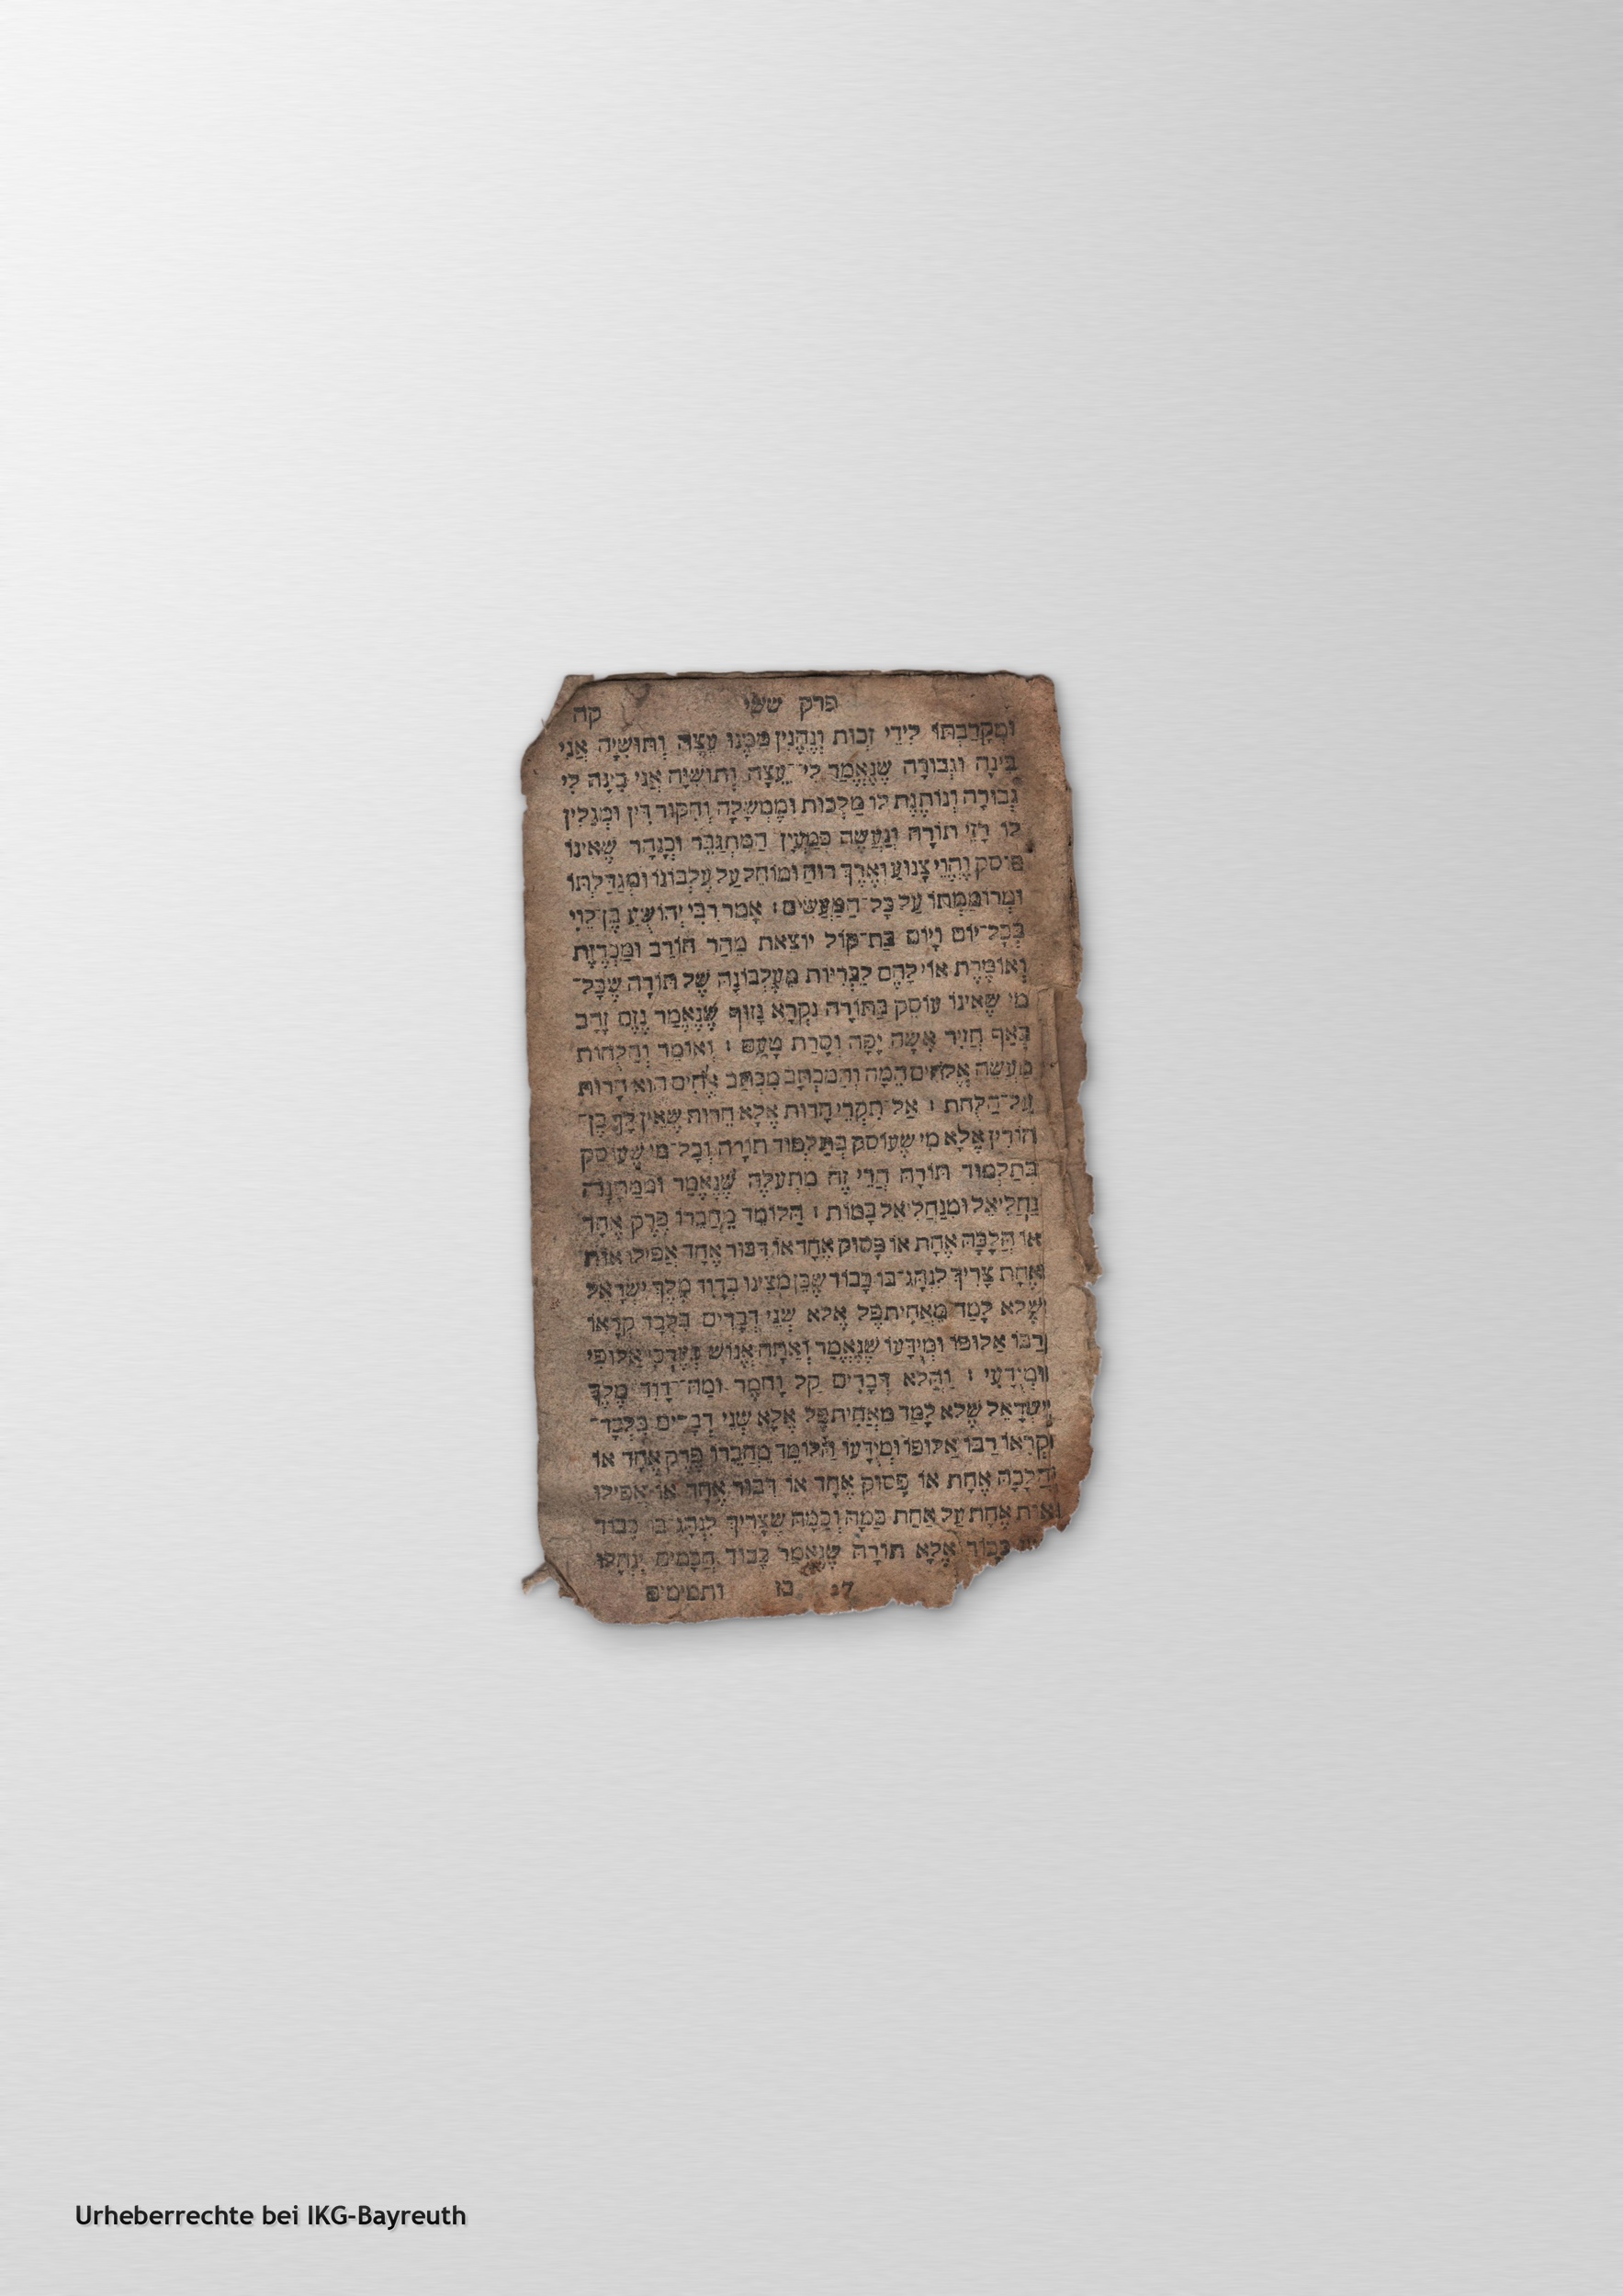 פרק ששי קה
וּמְקָרַבְתּוֹ לִידֵי זְכוּת וְנֶהֱנִין מִמֶּנּוּ עֵצָה וְתוּשִׁיָּה אֲנִי
בִּינָה וּגְבוּרָה שֶׁנֶּאֱמַר לִי־עֵצָה וְתוּשִׁיָּה אֲנִי בִינָה לִי
גְבוּרָה וְנוֹתֶנֶת לוֹ מַלְכוּת וּמֶמְשָׁלָה וְחִקּוּר דִּין וּמְגַלִּין
לוֹ רָזֵי תוֹרָה וְנַעֲשֶׂה כְּמַעְיָן הַמִּתְגַּבֵּר וּכְנָהָר שֶׁאֵינוֹ
פּוֹסֵק וֶהֱוֵי צָנוּעַ וְאֶרֶךְ רוּחַ וּמוֹחֵל עַל עֶלְבּוֹנוֹ וּמְגַדַּלְתּוֹ
וּמְרוֹמַמְתּוֹ עַל כָּל־הַמַּעֲשִׂים : אָמַר רִבִּי יְהוֹשֻׁעַ בֶּן־לֵוִי
בְּכָל־יוֹם וָיוֹם בַּת־קוֹל יוֹצֵאת מֵהַר חוֹרֵב וּמַכְרֶזֶת
וְאוֹמֶרֶת אוֹי לָהֶם לַבְּרִיּוֹת מֵעֶלְבּוֹנָהּ שֶׁל תּוֹרָה שֶׁכָּל־
מִי שֶׁאֵינוֹ עוֹסֵק בַּתּוֹרָה נִקְרָא נָזוּף שֶׁנֶּאֱמַר נֶזֶם זָהָב
בְּאַף חֲזִיר אִשָּׁה יָפָה וְסָרַת טָעַם : וְאוֹמֵר וְהַלֻּחוֹת
מַעֲשֵׂה אֱלֹהִים הֵמָּה וְהַמִּכְתָּב מִכְתַּב אֱלֹהִים הוּא חָרוּת
עַל־הַלֻּחֹת : אַל־תִּקְרֵי חָרוּת אֶלָּא חֵרוּת שֶׁאֵין לָךְ בֶּן־
חוֹרִין אֶלָּא מִי שֶׁעוֹסֵק בְּתַלְמוּד תּוֹרָה וְכָל־מִי שֶׁעוֹסֵק
בְּתַלְמוּד תּוֹרָה הֲרֵי זֶה מִתְעַלֶּה שֶׁנֶּאֱמַר וּמִמַּתָּנָה
נַחֲלִיאֵל וּמִנַּחֲלִיאֵל בָּמוֹת : הַלּוֹמֵד מֵחֲבֵרוֹ פֶּרֶק אֶחָד
אוֹ הֲלָכָה אֶחָת אוֹ פָּסוּק אֶחָד אוֹ דִּבּוּר אֶחָד אֲפִילוּ אוֹת
אֶחָת צָרִיךְ לִנְהָג־בּוֹ כָּבוֹד שֶׁכֵּן מָצִינוּ בְדָוִד מֶלֶךְ יִשְׂרָאֵל
שֶׁלֹּא לָמַד מֵאֲחִיתֹפֶל אֶלָּא שְׁנֵי דְבָרִים בִּלְבָד קְרָאוֹ
רַבּוֹ אַלּוּפוֹ וּמְיֻדָּעוֹ שֶׁנֶּאֱמַר וְאַתָּה אֱנוֹשׁ כְּעֶרְכִּי אַלּוּפִי
וּמְיֻדָּעִי : וַהֲלֹא דְּבָרִים קַל וָחֹמֶר וּמַה־דָּוִד מֶלֶךְ
יִשְׂרָאֵל שֶׁלֹּא לָמַד מֵאֲחִיתֹפֶל אֶלָּא שְׁנֵי דְבָרִים בִּלְבָד־
קְרָאוֹ רַבּוֹ אַלּוּפוֹ וּמְיֻדָּעוֹ הַלּוֹמֵד מֵחֲבֵרוֹ פֶּרֶק אֶחָד אוֹ
הֲלָכָה אֶחָת אוֹ פָּסוּק אֶחָד אוֹ דִּבּוּר אֶחָד אוֹ אֲפִילוּ
אוֹת אֶחָת עַל אַחַת כַּמָּה וְכַמָּה שֶׁצָּרִיךְ לִנְהָג־בּוֹ כָּבוֹד
כָּבוֹד אֶלָּא תוֹרָה שֶׁנֶּאֱמַר כָּבוֹד חֲכָמִים יִנְחָלוּ
27 כז ותמימים
Urheberrechte bei IKG-Bayreuth